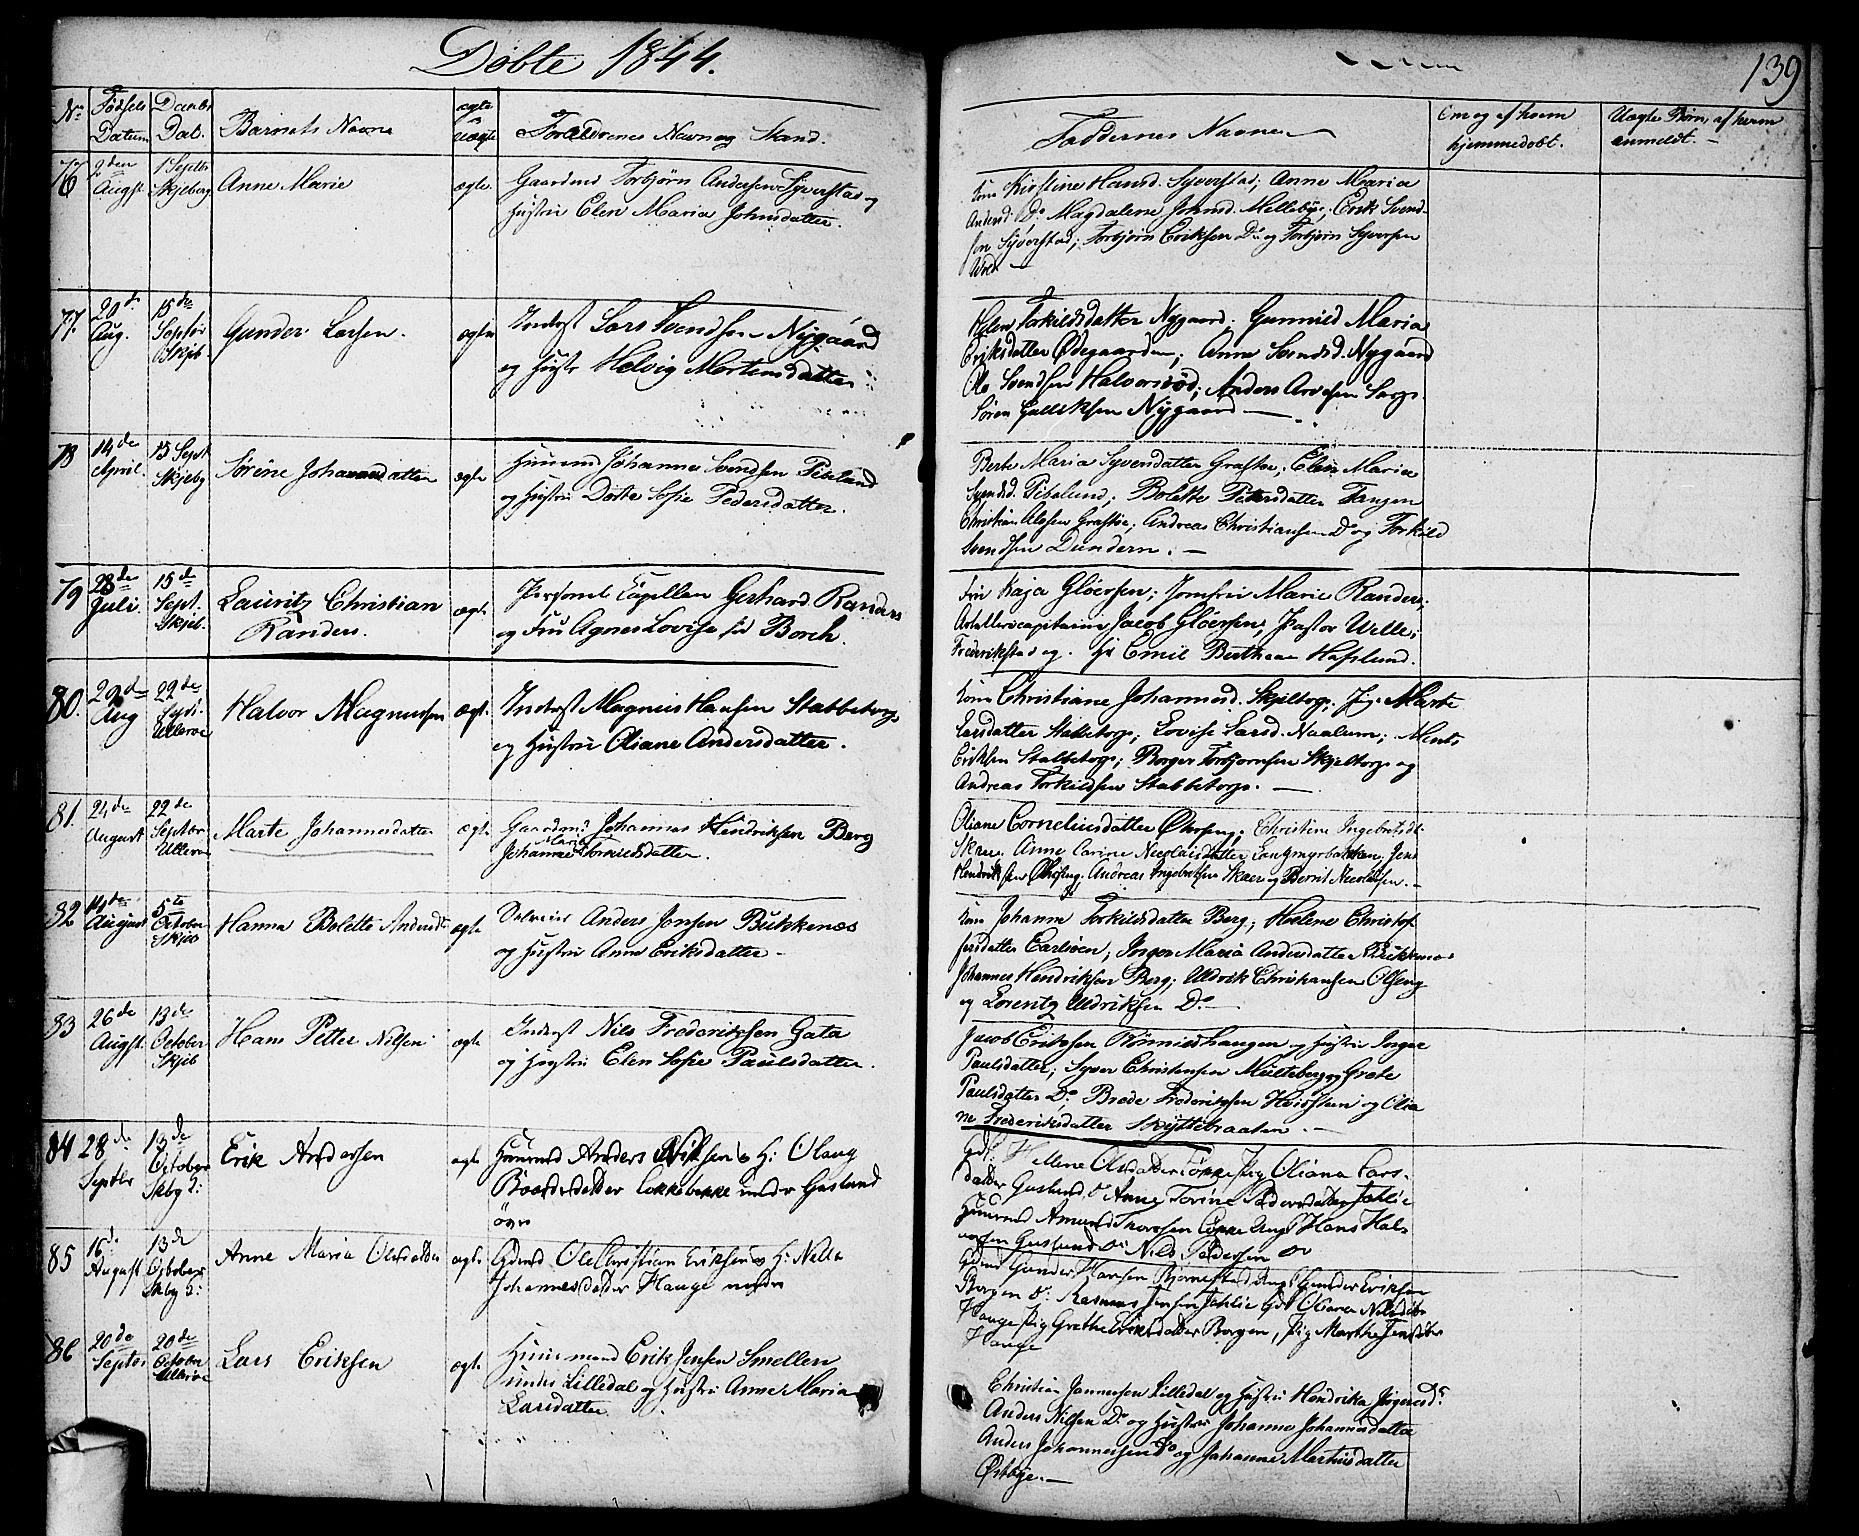 Døbte 1844.
139
No
Fødsels
Datum
Daabs
Dat.
Barnets Navne
ægte
uægte
Forældrenes Navn og Stand.
Faddernes Navne
Om og af hvem
hjemmedøbt.
Uægte Børn, af hvem
anmeldt.
76
2den
Augst
1 Septbr
Skjeberg
Anne Marie
ægte
Gaardmd Torbjørn Andersen Syverstad og
Hustru Elen Maria Johnsdatter.
Kone Kirstine Hansd. Syverstad; Anne Maria
Andersd. Do Magdalene Johnsd. Melleby; Erik Svend-
sen Syverstad; Torbjørn Eriksen Do og Torbjørn Syversen
77.
20d
Aug.
15de
Septbr
Skjeb.
Gunder Larsen.
ægte
Inderst Lars Svendsen Nygaard
og Hustr Helvig Mortensdatter
Helene Torkildsdatter Nygaard; Gunnild Maria
Eriksdatter Ødegaarden; Anne Svendsd. Nygaard
Ole Svendsen Halvorsrød; Anders Arvesen
Søren Gulliksen Nygaard
78
14de
April.
15 Sept
Skjebg
Sørine Johannesdatter
ægte
Huusmd Johannes Svendsen
og Hustru Dorte Sofie Pedersdatter.
Berte Maria Syversdatter Grastøe; Elen Maria
Svendsd. Bolette Petersdatter Tangen
Christian Olesen Grastøe; Andreas Christiansen Do og Torkild
Svendsen Dundern.
79
28de
Juli.
15de
Sept.
Skjeb.
Lauritz Christian
Randers.
ægte
Personel Capellan Gerhard Randers
og Fru Agnes Lovise fød Borch.
Fru Kaja Gløersen; Jomfru Marie Randers;
Artillericapitain Jacob Gløersen; Pastor Wille;
Frederikstad og Hr Emil Berthean Hafslund.
80.
29de
Aug
22de
Septr
Ullerøe
Halvor Magnussen
ægt.
Inderst Magnus Hansen Stabbetorp
og Hustru Oliane Andersdatter.
Kone Christiane Johannesd. Skjeltorp; Pig. Marte
Larsdatter Stabbetorp; Lovise Larsd. Naalum; Ments
Eriksen Stabbetorp; Borger Torbjørnsen Skjeltorp og
Andreas Torkildsen Stabbetorp.
81.
24de
August
22de
Septbr
Ullerøe
Marte Johannesdatter
ægte
Gaardmd Johannes Hendriksen Berg
Johanne Maria Torkildsdatter.
Oliane Corneliusdatter Christine Ingebretsdt.
Skaee; Anne Carine Nicolaisdatter Langmyrbakken; Jens
Hendriksen Andreas Ingebretsen Skaer og Bernt Nicolaisen.
82
14de
August
5te
October
Skjeb
Hanna Bolette Andersdt
ægte
Selveier Anders Jensen Bukkenæs
og Hustru Anne Eriksdatter
Kone Johanne Torkildsdatter Berg; Helene Christof-
fersdatter Inger Maria Andersdatter Bukkenæs
Johannes Hendriksen Berg; Uldrik Christiansen Olseng
og Lorentz Uldriksen Do
83
26de
Augst
13de
October
Skjeb
Hans Petter Nilsen
ægte
Inderst Nils Frederiksen Gata
og Hustru Elen Sofie Paulsdatter.
Jacob Eriksen og Hustru Inger
Paulsdatter; Syver Christensen og Grete
Paulsdatter Do Brede Frederiksen og Olia
ne Frederiksdatter Skyttebraaten.
84
28de
Septbr
13de
October
Skbg
Erik Andersen
ægte
Huusmd Anders Nilsen og H: Olaug
Lökkebække under Guslund
öyre
Hellene Olsdatter Løkke, Pig Oliana Lars-
datter Guslund, Do Anne Torine Pedersdatter Dahlie
Huusmd Amund Thorssen Løkke Ungk Hans Hal-
vorsen Guslund Do Nils Pedersen Do
85
16de
August
13de
October
Skbg
Anne Maria Olesdatter
ægte
Gdmd Ole Christian Eriksen og H: Nelle
Johannesdatter Hauge nedre
Gdmd Gunder Hansen Bjørnestad, Ungk Gunder Eriksen
Borgen Do Rasmus Jensen Dahlie Gdk Oliana Nilsdtr
Hauge Pig Grethe Eriksdatter Borgen, Pig Marthe Jensdtr
Hauge
86
20de
Septbr
20de
October
Ullerøe
Lars Eriksen
ægte
Huusmand Erik Jensen Smellen
under Lilledal og Hustru Anne Maria
Larsdatter
Christian Jannersen Lilledal og Hustru Hendrika
Anders Nilsen Do og Hustru Johanne Johannesdatter
Anders Johannessen Do og Johanne Martinsdatter
Østbye.